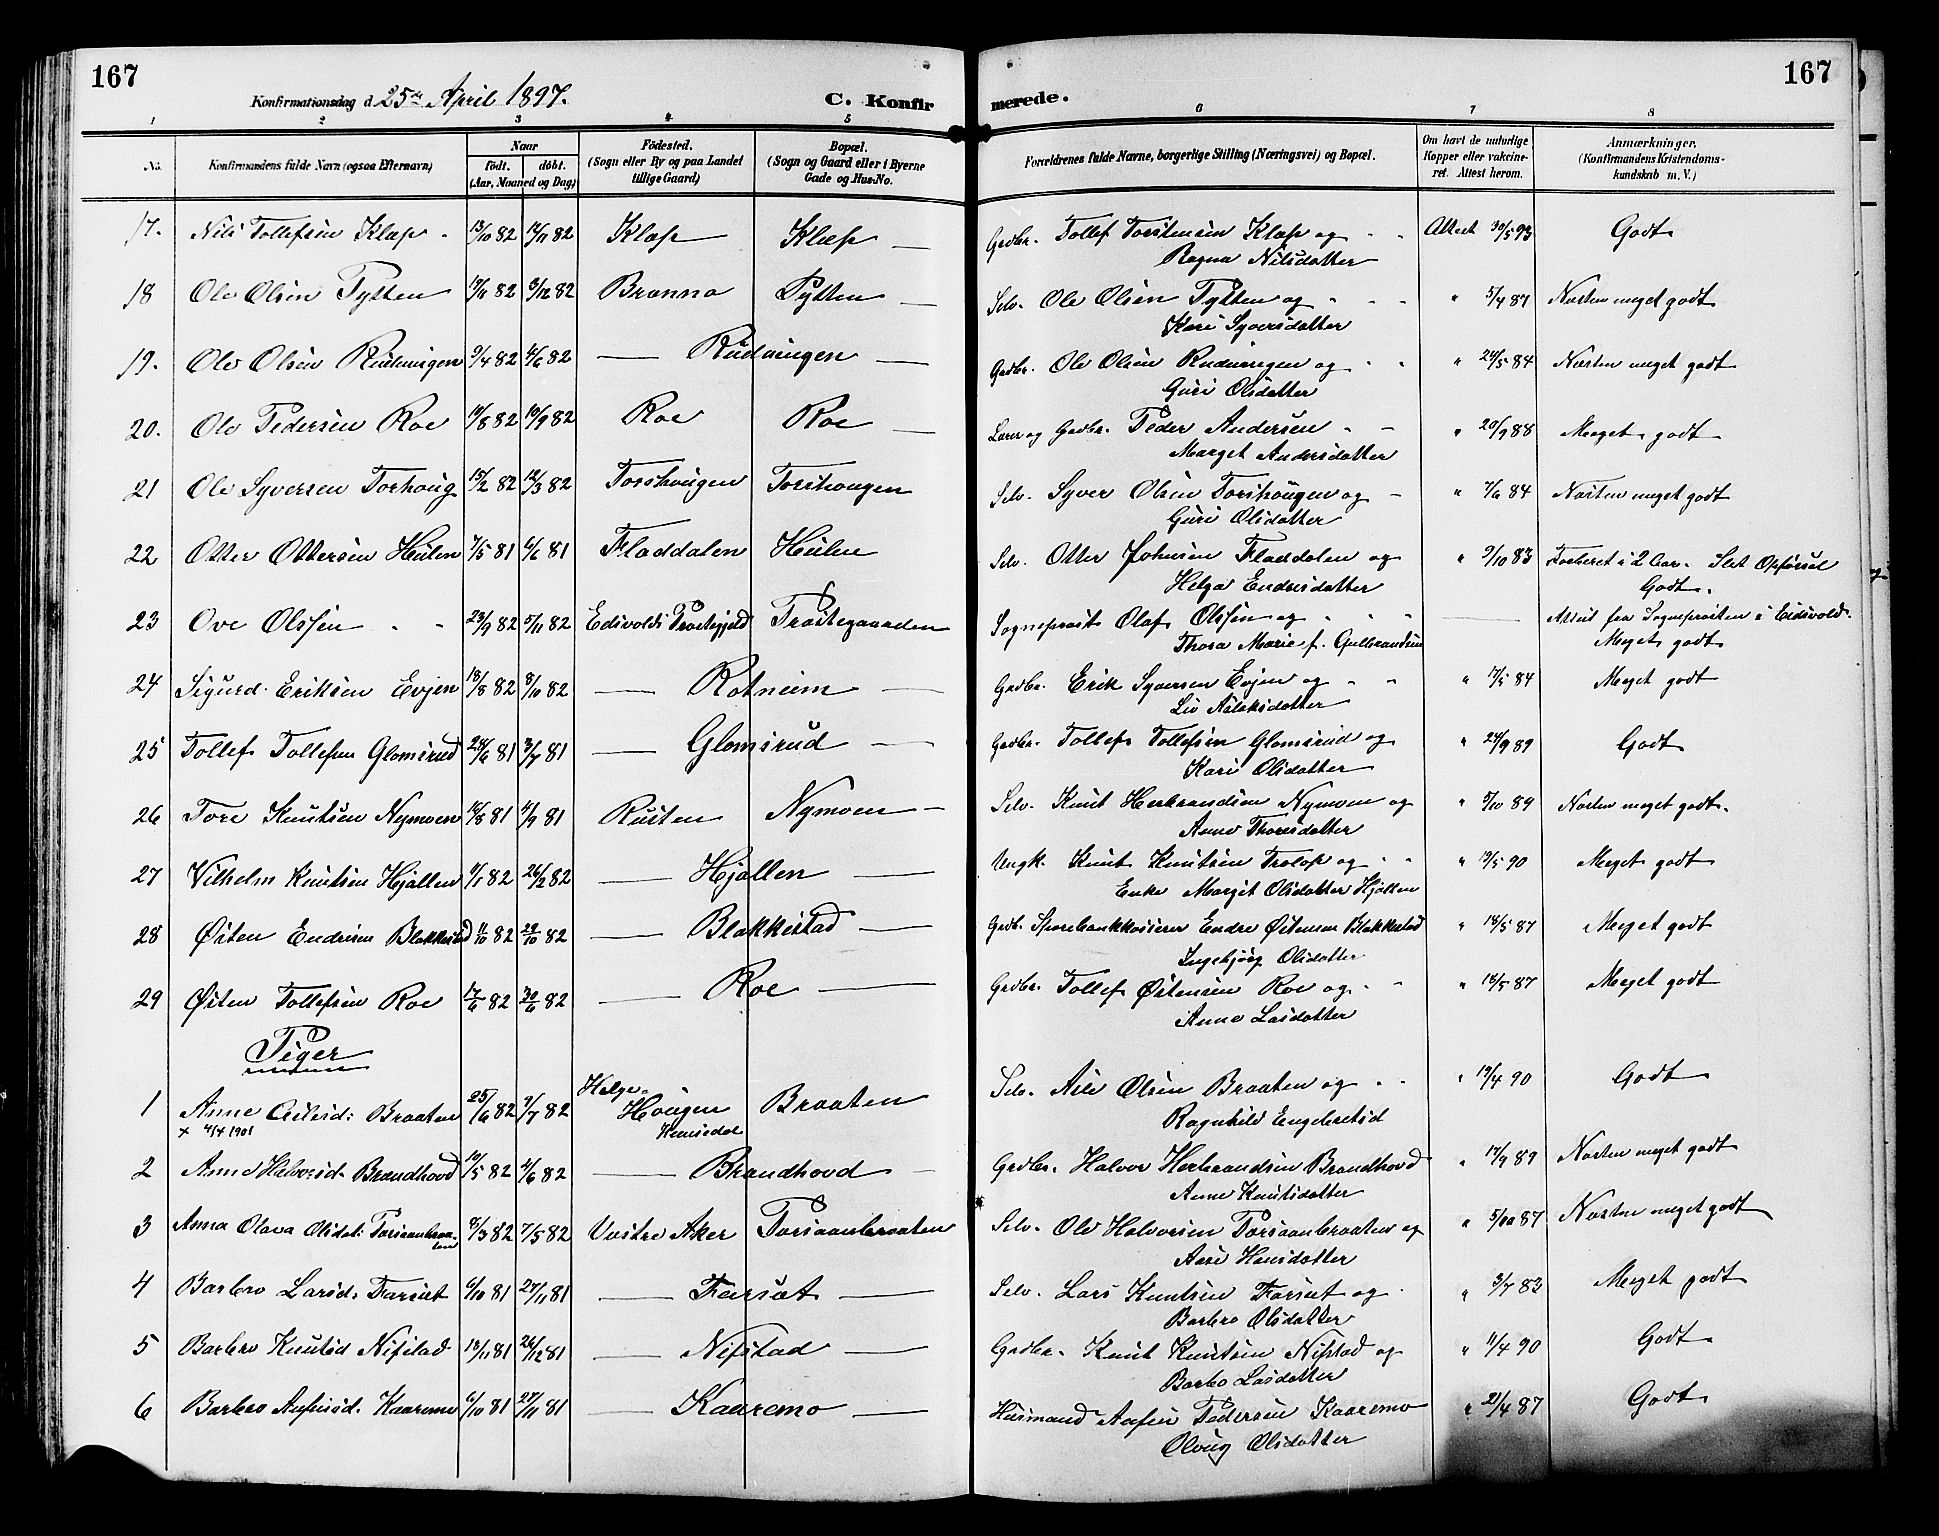 167
167
Konfirmationsdag d. 25de April 1897.
C. Konfir
merede.
1 2 3 4 5 6 7 8
No. Konfirmandens fulde Navn (ogsaa Efternavn) Naar født. døbt. (Aar, Maaned og Dag) Fødested. (Sogn eller By og paa Landet tillige Gaard) Bopæl. (Sogn og Gaard eller i Byerne Gade og Hus-No. Forældrenes fulde Navne, borgerlige Stilling (Næringsvei) og Bopæl. Om havt de naturlige Kopper eller vakcineret. Attest herom. Anmærkninger. (Konfirmandens Kristendomskundskab m. V.)
17. Nils Tollefsen Klæp 13/10 82 82 Klæp Klæp Grdbr. Tollef Torstensen Klæp og Attest 30/5 93 Godt
Ragna Nilsdatter
18 Ole Olsen Pytten 82 3/12 82 Brenno Pytten Selv. Ole Olsen Pytten og " 5/4 87 Næsten meget godt
Kari Syversdatter
19. Ole Olsen Rudningen 9/4 82 4/6 82 Rudningen Grdbr. Ole Olsen Rudningen og " 24/5 84 Næsten meget godt
Guri Olsdatter
20. Ole Pedersen Roe 82 10/9 82 Roe Roe Lærer og Grdbr. Peder Andersen " 20/9 88 Meget godt
Marget Andersdatter
21 Ole Syversen Torhoug 15/2 82 12/3 82 Torshougen Torshougen Selv. Syver Olsen Torshougen og " 7/6 84 Næsten meget godt
Guri Olsdatter
22 Otter Ottersen Hulen 7/5 81 6/6 81 Fladdalen Hulen Selv. Otter Johnsen Fladdalen og " 9/10 83 Forberet i 2 Aar. Slet Opførsel
Helga Endresdatter Godt.
23 Ove Olssen 23/9 82 5/11 82 Edsvolds Prestegjeld Præstegaarden Sogneprest Olaf Olssen og Attest fra Sognepræsten i Eidsvold.
Thora Marie f. Gulbrandsen Meget godt
24 Sigurd Eriksen Evjen 18/8 82 8/10 82 Rotneim Grdbr. Erik Syversen Evjen og " 17/5 84 Meget godt
Liv Aslaksdatter
25 Tollef Tollefsen Glomsrud 24/6 81 3/7 81 Glomsrud Grdbr. Tollef Tollefsen Glomsrud og " 24/9 89 Godt
Kari Olsdatter
26 Tore Knutsen Nymoen 16/8 81 4/9 81 Rusten Nymoen Selv. Knut Herbrandsen Nymoen og " 5/10 89 Næsten meget godt.
Anne Thoresdatter
27 Vilhelm Knutsen Hjallen 82 26/2 82 Hjallen Ungk. Knut Knutsen Trolop og " 13/5 90 Meget godt
Enke Margit Olsdatter Hjallen
28 Østen Endresen Blakkestad 11/10 82 29/10 82 Blakkestad Grdb. Sparebankkasserer Endre Østensen Blakkestad " 18/5 87 Meget godt
Ingebjørg Olsdatter
29 Østen Tollefsen Roe 17/6 82 30/6 82 Roe Grdbr. Tollef Østensen Roe og " 18/5 87 Meget godt
Anne Lasdatter
Piger
1 Anne Aslesd: Braaten 25/6 82 9/7 82 Helge Hougen Braaten Selv. Asle Olsen Braaten og " 19/4 90 Godt
+ 4/4 1901 Hemsedal Ragnhild Engebretsd
2 Anne Halvorsd. Brandhovd 10/5 82 4/6 82 Brandhovd Grdbr. Halvor Herbrandsen Brandhovd " 14/9 89 Næsten meget godt
Anne Knutsdatter
3 Anna Olava Olsdat: Torsaanbraaten 8/3 82 7/5 82 Vestre Aker Torsaanbraaten Selv. Ole Halvorsen Torsaanbraaten og " 5/10 87 Næsten meget godt
Aase Hansdatter
4 Barbro Larsd: Farsæt 6/10 81 27/11 81 Farsæt Selv. Lars Knutsen Farsæt og " 3/7 82 Meget godt
Barbro Olsdatter
5 Barbro Knutsd Nifstad 13/11 81 26/12 81 Nifstad Grdbr. Knut Knutsen Nifstad og " 11/4 90 Godt
Barbo Lasdatter
6 Barbro Anfinsd. Kaaremo 6/10 81 27/11 81 Kaaremo Husmand Anfin Pedersen Kaaremo " 21/4 87 Godt
Olaug Olsdatter